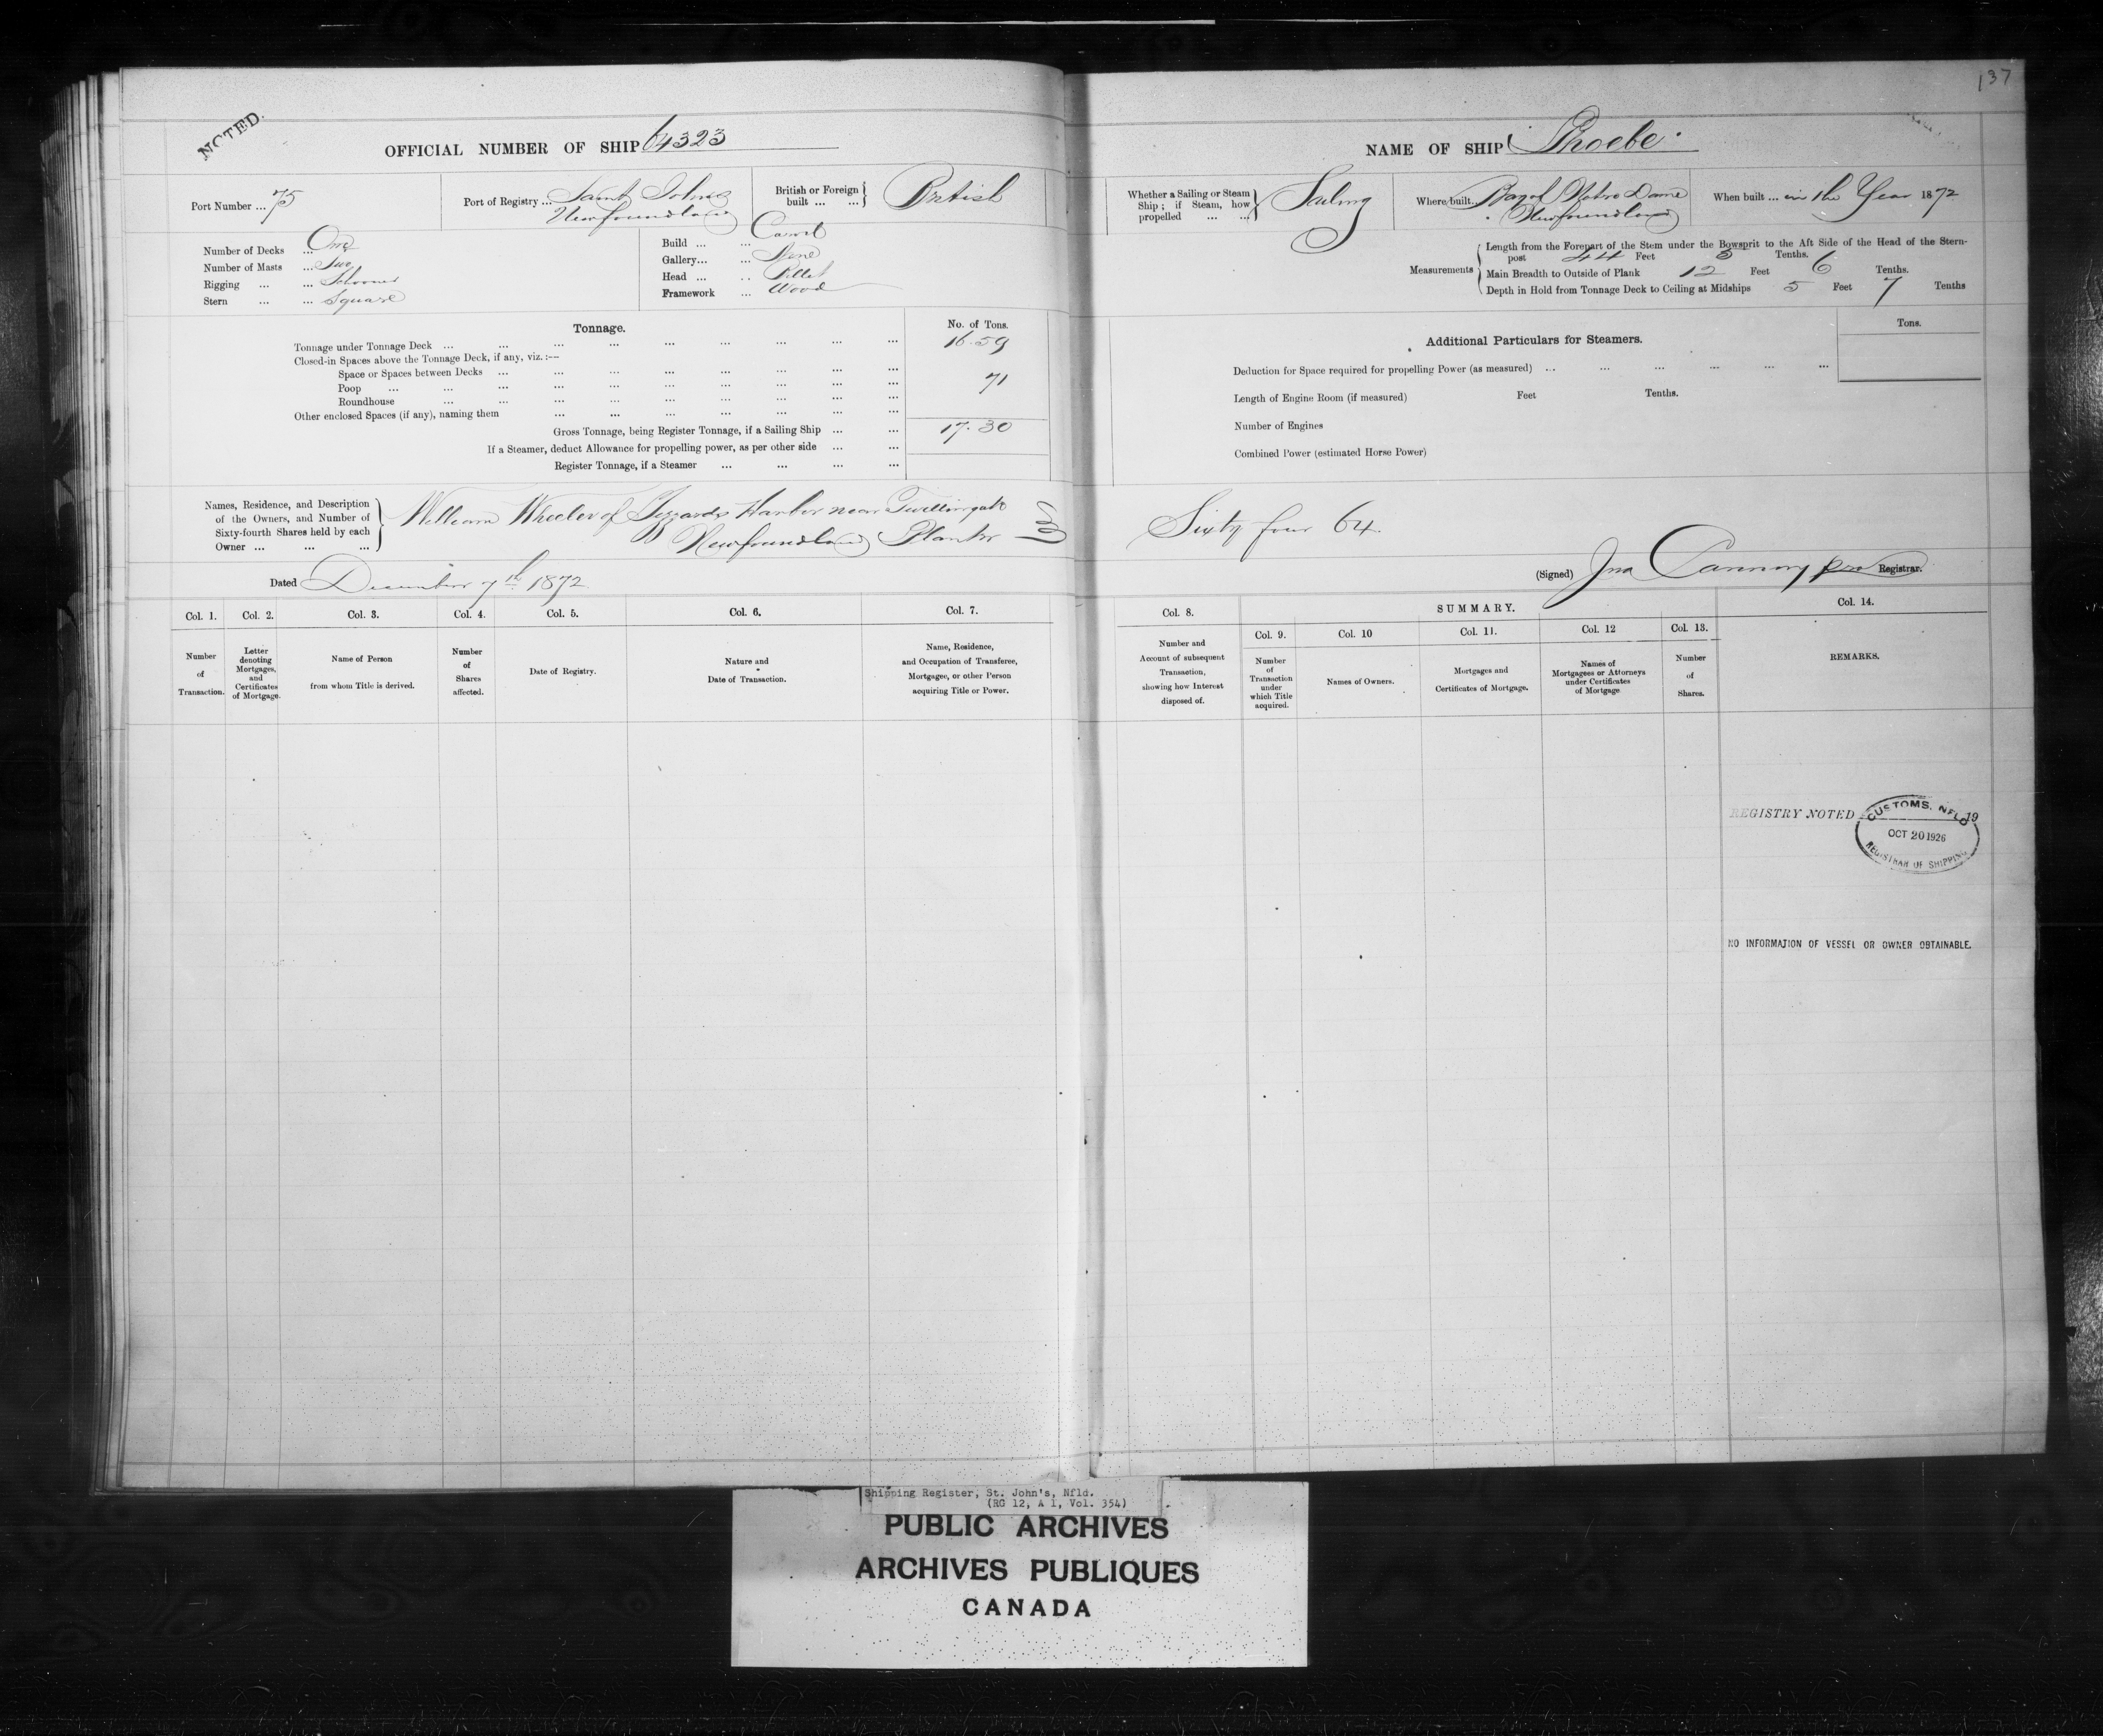 137
NOTED.
OFFICIAL NUMBER OF SHIP 64323
NAME OF SHIP Phoebe
Port Number ... 75
Port of Registry ... Saint Johns
Newfoundland
British or Foreign
built ... ...
British
Whether a Sailing or Steam
Ship; if Steam, how
propelled ... ...
Sailing
Where built... Bay of Notre Dame
Newfoundland
When built ... in the Year 1872
Number of Decks ... One
Number of Masts ... Two
Rigging ... ... Schooner
Stern ... ... Square
Build ... ... Carvel
Gallery... ... None
Head ... .. Billet
Framework ... Wood
Measurements
Length from the Forepart of the Stem under the Bowsprit to the Aft Side of the Head of the Stern-
post 44 Feet 5 Tenths.
Main Breadth to Outside of Plank 12 Feet 6 Tenths.
Depth in Hold from Tonnage Deck to Ceiling at Midships 5 Feet 7 Tenths
Tonnage.
No. of Tons.
Tonnage under Tonnage Deck ... ... ... ... ... ... ... ... ... 16.59
Closed-in Spaces above the Tonnage Deck, if any, viz. :—
Space or Spaces between Decks ... ... ... ... ... ... ... ...
Poop ... ... ... ... ... ... ... ... ... ... 71
Roundhouse ... ... ... ... ... ... ... ... ...
Other enclosed Spaces (if any), naming them ... ... ... ... ... ... ...
Gross Tonnage, being Register Tonnage, if a Sailing Ship ... ... 17.30
If a Steamer, deduct Allowance for propelling power, as per other side ... ...
Register Tonnage, if a Steamer ... ... ... ...
Tons.
Additional Particulars for Steamers.
Deduction for Space required for propelling Power (as measured) ... ... ... ... ... ...
Length of Engine Room (if measured) Feet Tenths.
Number of Engines
Combined Power (estimated Horse Power)
Names, Residence, and Description
of the Owners, and Number of
Sixty-fourth Shares held by each
Owner ... ... ...
William Wheeler of Harbor near Twillingate
Newfoundland Planter
Sixty four 64.
Dated December 7th 1872
(Signed) Jno Canning pro Registrar.
Col. 1. Col. 2. Col. 3. Col. 4. Col. 5. Col. 6. Col. 7.
Number
of
Transaction.
Letter
denoting
Mortgages,
and
Certificates
of Mortgage.
Name of Person
from whom Title is derived.
Number
of
Shares
affected.
Date of Registry.
Nature and
Date of Transaction.
Name, Residence,
and Occupation of Transferee,
Mortgagee, or other Person
acquiring Title or Power.
Col. 8.
Number and
Account of subsequent
Transaction,
showing how Interest
disposed of.
SUMMARY.
Col. 9. Col. 10 Col. 11. Col. 12 Col. 13.
Number
of
Transaction
under
which Title
acquired.
Names of Owners.
Mortgages and
Certificates of Mortgage.
Names of
Mortgagees or Attorneys
under Certificates
of Mortgage
Number
of
Shares.
Col. 14.
REMARKS.
REGISTRY NOTED 19
CUSTOMS, NFLD
OCT 20 1926
REGISTRAR OF SHIPPING
NO INFORMATION OF VESSEL OR OWNER OBTAINABLE.
Shipping Register, St. John's, Nfld.
(RG 12, A 1, Vol. 354)
PUBLIC ARCHIVES
ARCHIVES PUBLIQUES
CANADA